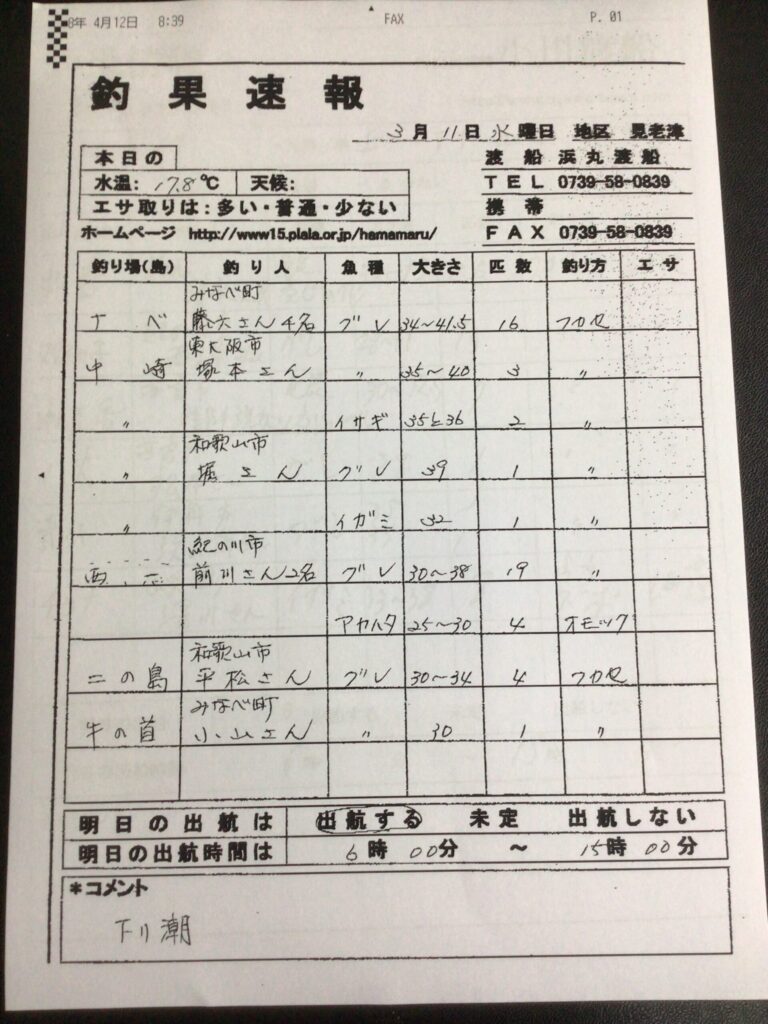 8年 4月12日 8:39 FAX P. 01
釣果速報
3月11日水曜日 地区 見老津
本日の
渡船 浜丸渡船
水温: 17.8℃ 天候:
TEL 0739-58-0839
エサ取りは:多い・普通・少ない
携帯
ホームページ http://www15.plala.or.jp/hamamaru/
FAX 0739-58-0839
釣り場(島) 釣り人 魚種 大きさ 匹数 釣り方 エサ
みなべ町
ナベ 藤大さん4名 グレ 34〜41.5 16 フカセ
東大阪市
中崎 塚本さん 〃 35〜40 3 〃
〃 イサギ 35と36 2 〃
和歌山市
〃 堀さん グレ 39 1 〃
〃 イガミ 32 1 〃
紀の川市
前川さん2名 グレ 30〜38 19 〃
アカハタ 25〜30 4 オモック
和歌山市
二の島 平松さん グレ 30〜34 4 フカセ
みなべ町
牛の首 小山さん 〃 30 1 〃
明日の出航は 出航する 未定 出航しない
明日の出航時間は 6時00分 〜 15時00分
*コメント
下り潮